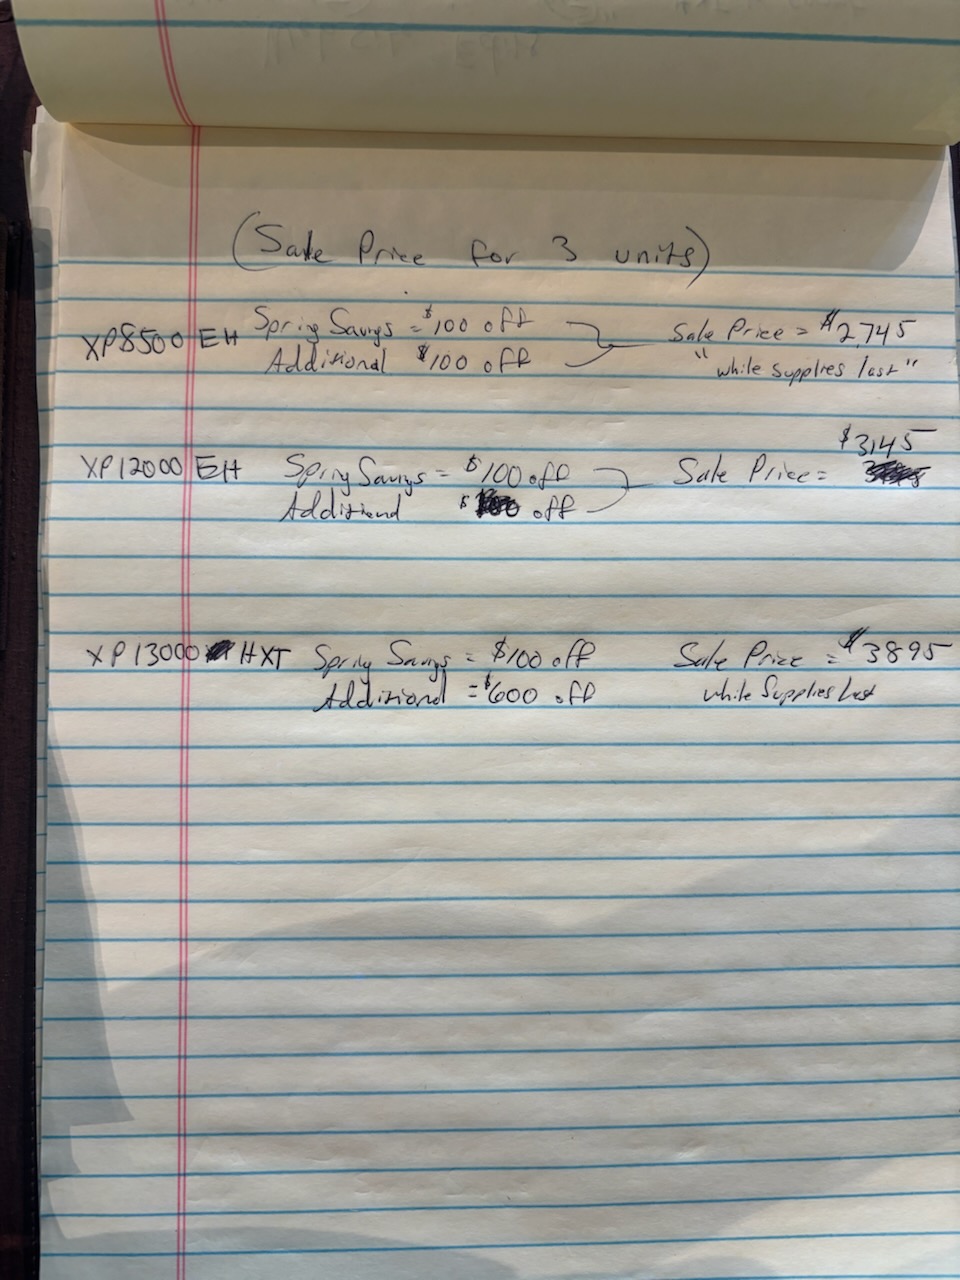 (Sale Price for 3 units)
XP8500 EH Spring Savings = $100 off Sale Price = $2,745
Additional $100 off "while supplies last"
$3145
XP12000 EH Spring Savings = $100 off Sale Price =
Additional $ off
XP13000 HXT Spring Savings = $100 off Sale Price = $3895
Additional = $600 off while Supplies last